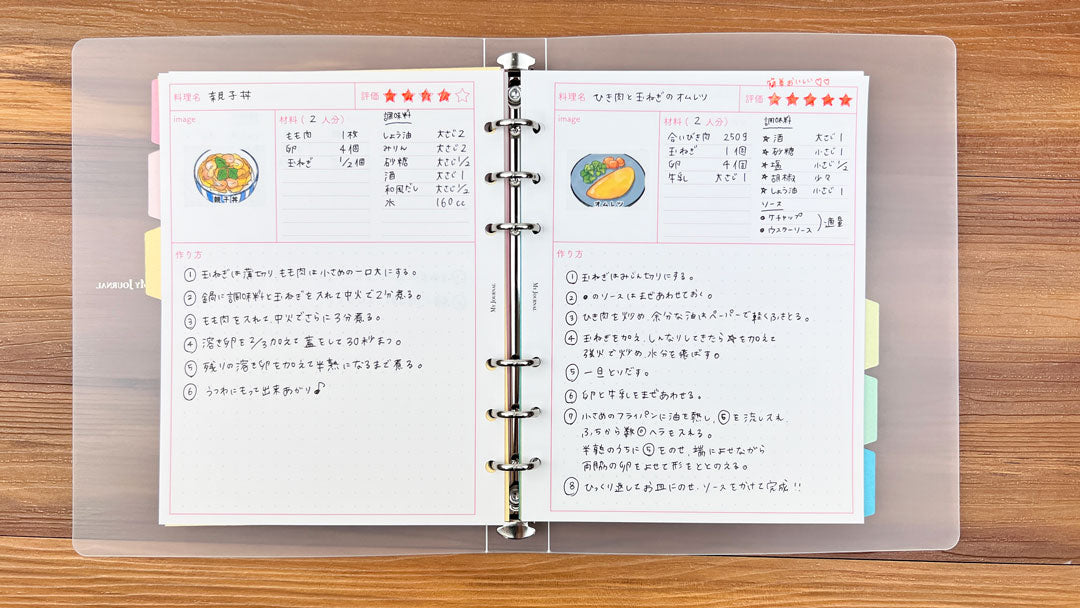 料理名 親子丼 評価
image
材料(2 人分)
もも肉 1枚
卵 4個
玉ねぎ 1/2個
調味料
しょう油 大さじ2
みりん 大さじ2
砂糖 大さじ1/2
酒 大さじ1
和風だし 大さじ1/2
水 160cc
親子丼
作り方
① 玉ねぎは薄切り、もも肉は小さめの一口大にする。
② 鍋に調味料と玉ねぎを入れて中火で2分煮る。
③ もも肉を入れて、中火でさらに3分煮る。
④ 溶き卵を2/3加えて蓋をして30秒まつ。
⑤ 残りの溶き卵を加えて半熟になるまで煮る。
⑥ うつわにもって出来あがり♪
MY JOURNAL
MY JOURNAL
MY JOURNAL
簡単おいしい♡♡
料理名 ひき肉と玉ねぎのオムレツ 評価
image
材料(2 人分)
合いびき肉 250g
玉ねぎ 1個
卵 4個
牛乳 大さじ1
調味料
★酒 大さじ1
★砂糖 小さじ1
★塩 小さじ1/2
★胡椒 少々
★しょう油 小さじ1
ソース
●ケチャップ
●ウスターソース
適量
オムレツ
作り方
① 玉ねぎはみじん切りにする。
② ●のソースはまぜあわせておく。
③ ひき肉を炒め、余分な油はペーパーで軽くふきとる。
④ 玉ねぎを加え、しんなりしてきたら★を加えて
強火で炒め、水分を飛ばす。
⑤ 一旦とりだす。
⑥ 卵と牛乳をまぜあわせる。
⑦ 小さめのフライパンに油を熱し、⑥を流し入れ、
ふちから数回ヘラを入れる。
半熟のうちに⑤をのせ、端によせながら
両脇の卵をよせて形をととのえる。
⑧ ひっくり返してお皿にのせ、ソースをかけて完成!!